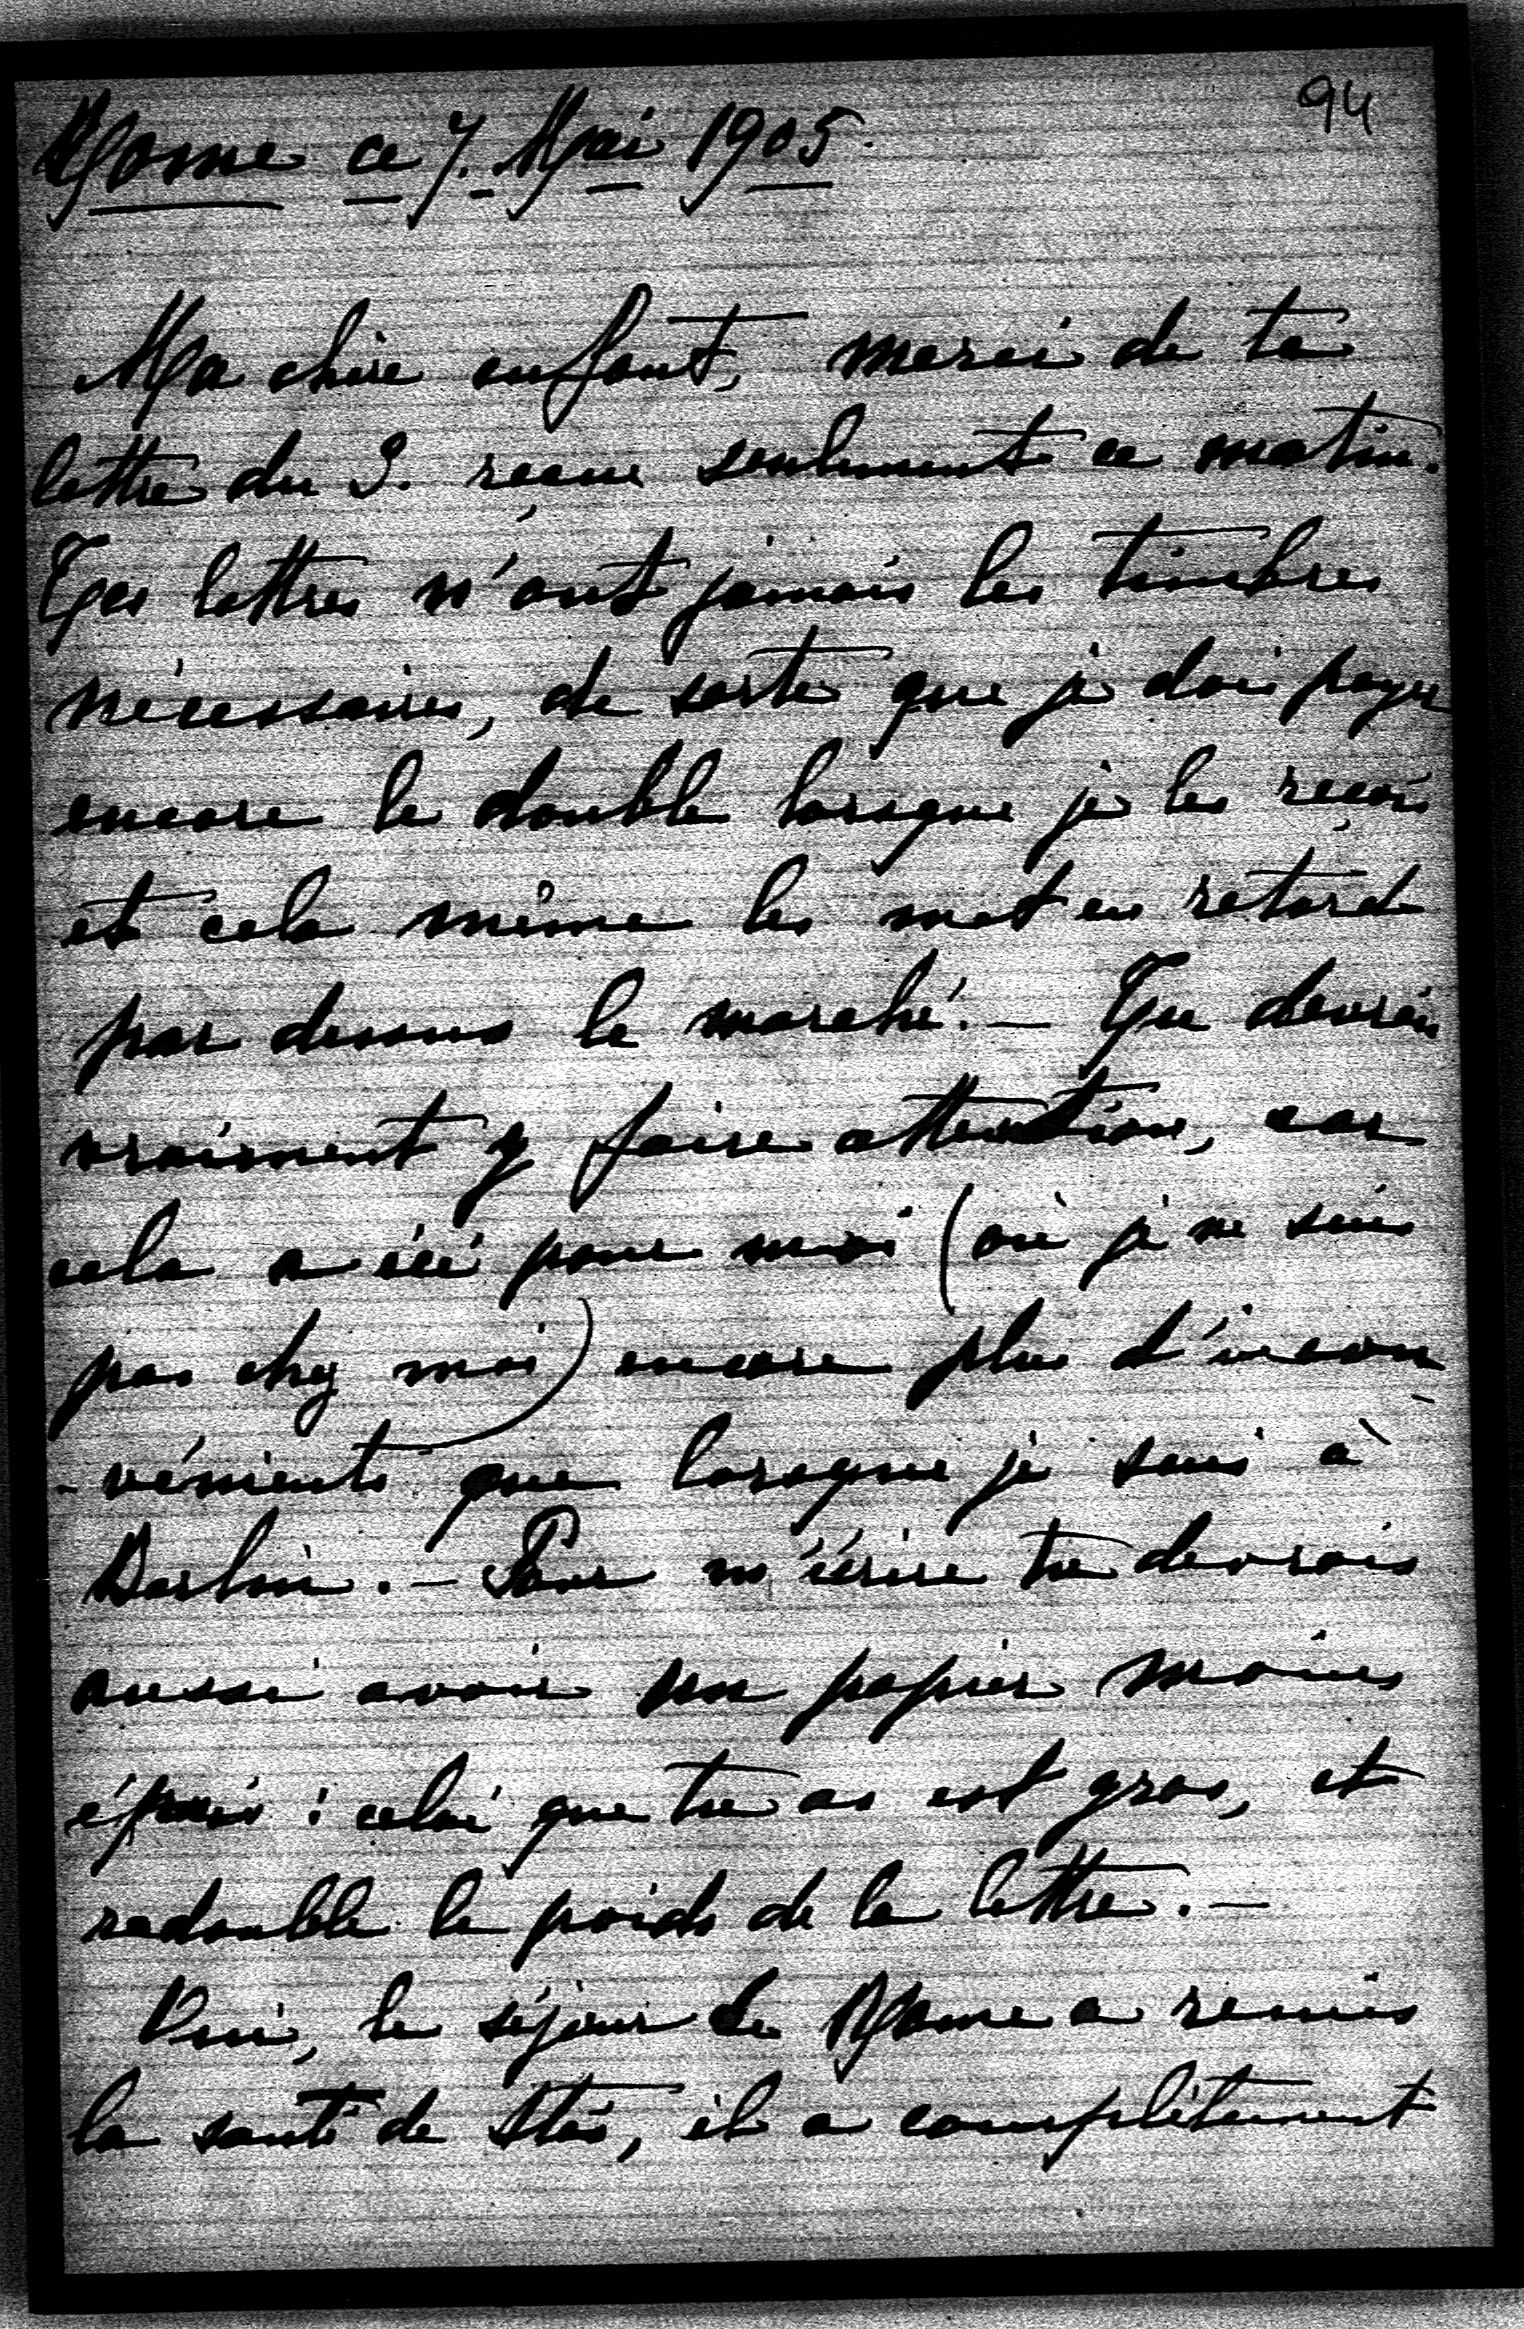 94
Rome ce 7. Mai 1905.
Ma chère enfant, merci de ta
lettre du 3. reçue seulement ce matin.
Tes lettres n'ont jamais les timbres
nécessaires, de sorte que je dois payer
encore le double lorsque je les reçois
et cela même les met en retard
par dessus le marché. — Tu devrais
vraiment y faire attention, car
cela a été pour moi (où je ne suis
pas chez moi) encore plus d'incon-
-vénients que lorsque je suis à
Berlin. — Pour m'écrire tu devrais
aussi avoir un papier moins
épais : celui que tu as est gros, et
redouble le poids de la lettre. —
Oui, le séjour de Rome a remis
la santé de Stas, il a complètement